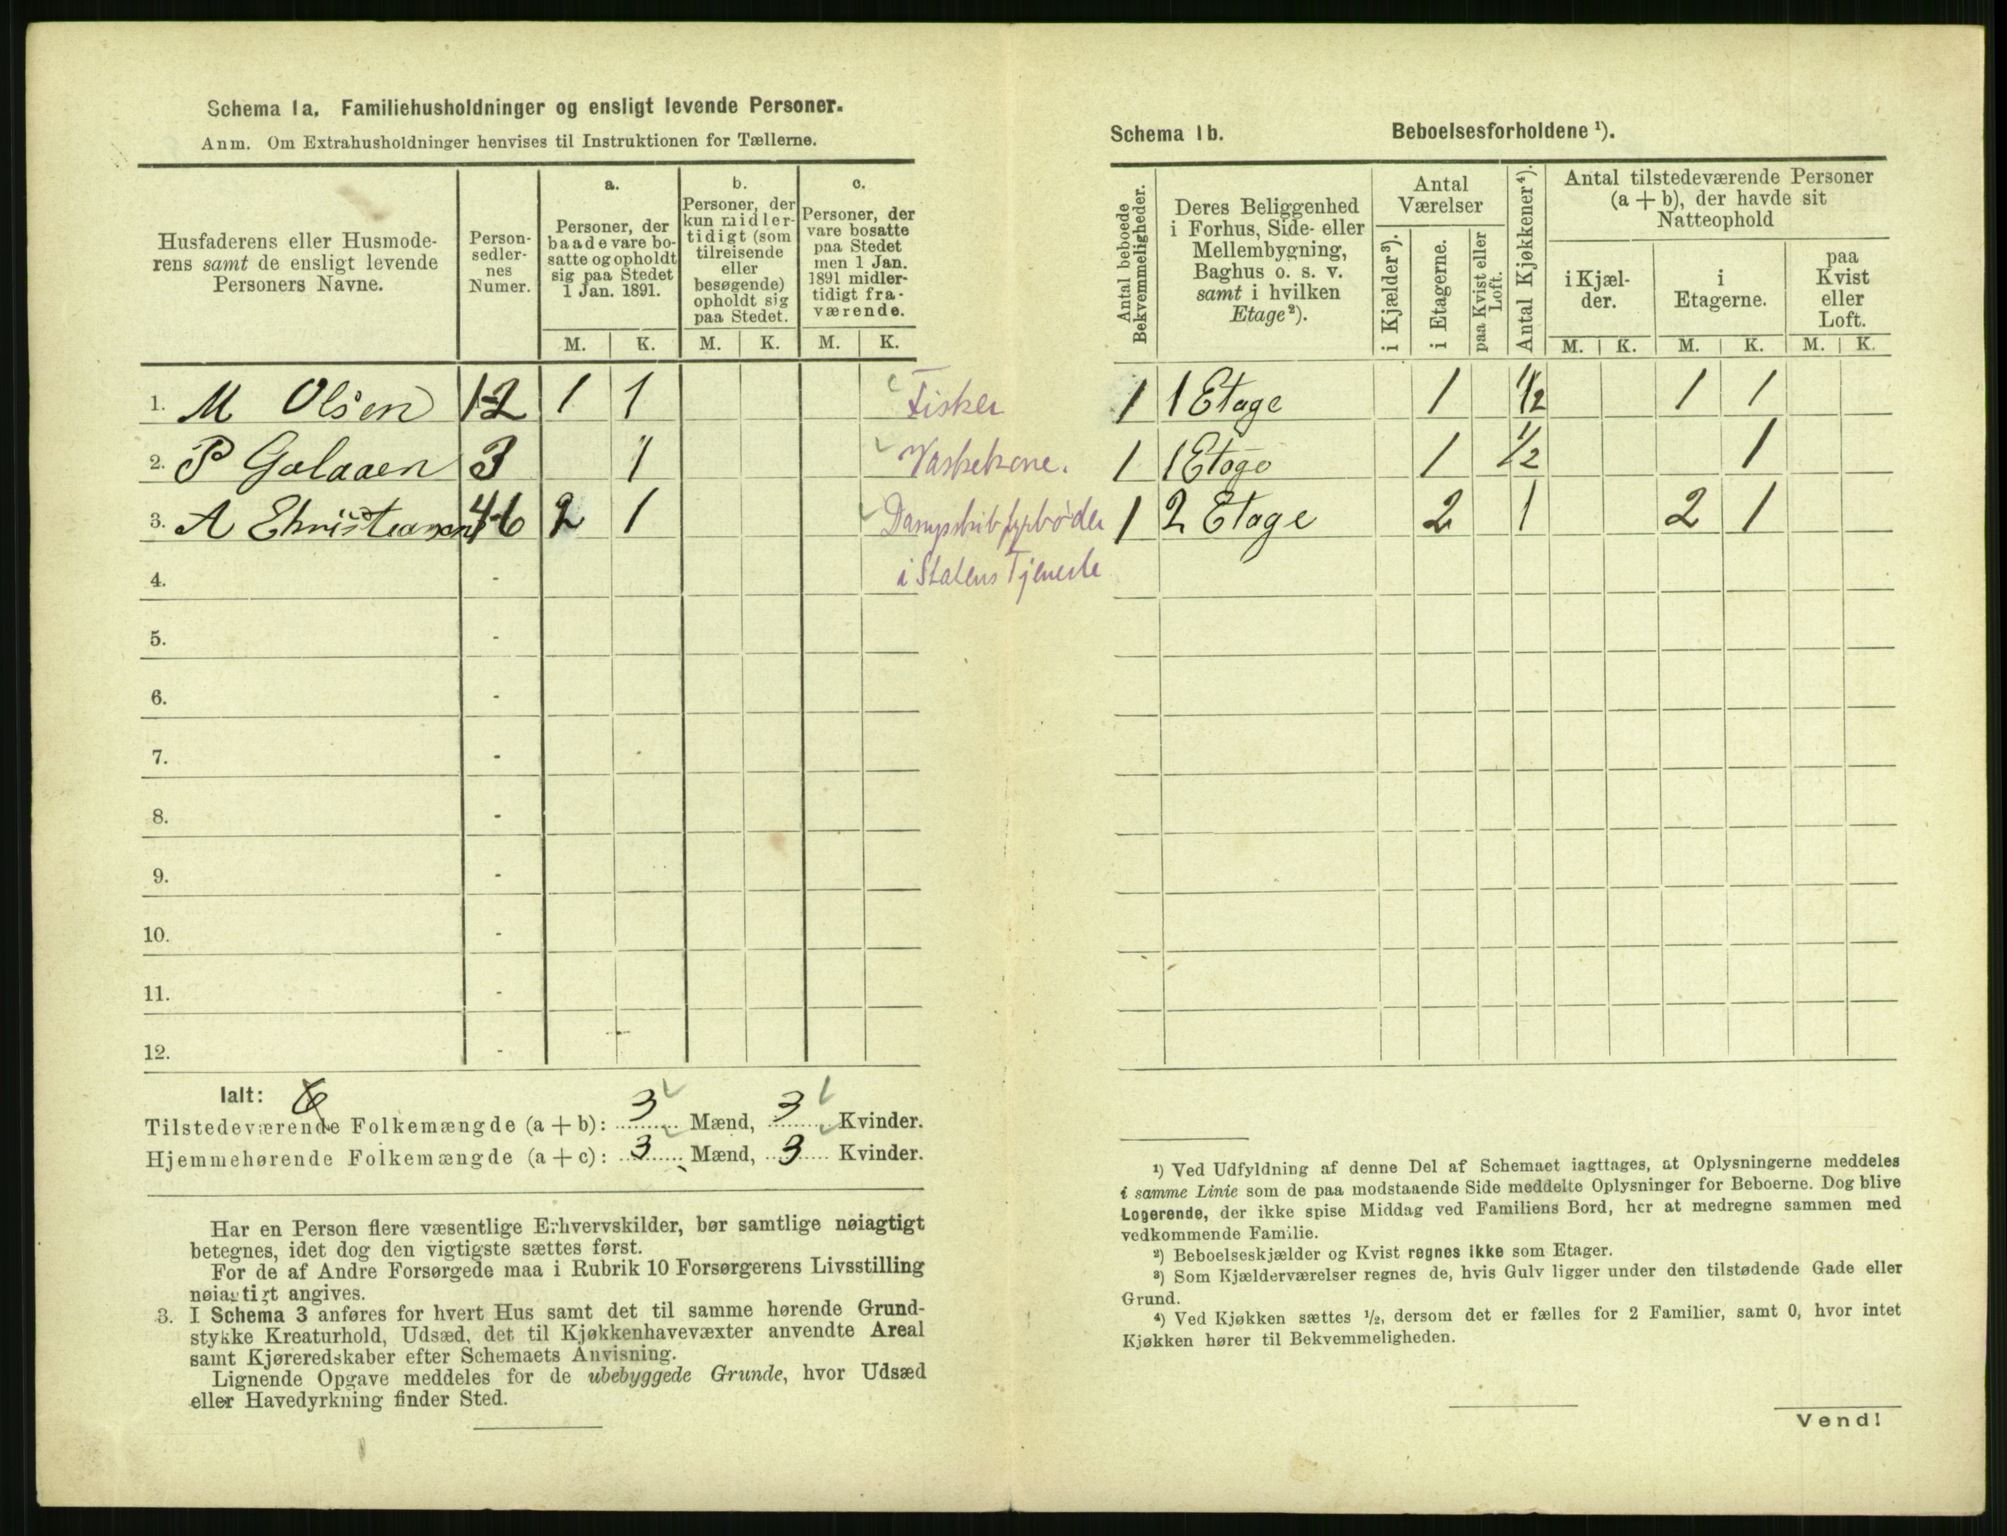 Schema 1a. Familiehusholdninger og ensligt levende Personer.
Anm. Om Extrahusholdninger henvises til Instruktionen for Tællerne.
Husfaderens eller Husmode-
rens samt de ensligt levende
Personers Navne.
Person-
sedler-
nes
Numer.
a.
Personer, der
baade vare bo-
satte og opholdt
sig paa Stedet
1 Jan. 1891.
b.
Personer, der
kun midler-
tidigt (som
tilreisende
eller
besøgende)
opholdt sig
paa Stedet.
c.
Personer, der
vare bosatte
paa Stedet
men 1 Jan.
1891 midler-
tidigt fra-
værende.
M. K. M. K. M. K.
1. M Olsen 1-2 1 1 Fisker
2. P Galaaen 3 1 Vaskekone.
3. A Christiansen 4-6 2 1 Dampskibsfyrbøder
4. - i Statens Tjeneste
5. -
6. -
7. -
8. -
9. -
10. -
11. -
12. -
Ialt: 6
Tilstedeværende Folkemængde (a + b): 3 Mænd, 3 Kvinder.
Hjemmehørende Folkemængde (a + c): 3 Mænd, 3 Kvinder.
Har en Person flere væsentlige Erhvervskilder, bør samtlige nøiagtigt
betegnes, idet dog den vigtigste sættes først.
For de af Andre Forsørgede maa i Rubrik 10 Forsørgerens Livsstilling
nøiagtigt angives.
3. I Schema 3 anføres for hvert Hus samt det til samme hørende Grund-
stykke Kreaturhold, Udsæd, det til Kjøkkenhavevæxter anvendte Areal
samt Kjøreredskaber efter Schemaets Anvisning.
Lignende Opgave meddeles for de ubebyggede Grunde, hvor Udsæd
eller Havedyrkning finder Sted.
Schema 1b. Beboelsesforholdene ¹).
Antal beboede
Bekvemmeligheder.
Deres Beliggenhed
i Forhus, Side- eller
Mellembygning,
Baghus o. s. v.
samt i hvilken
Etage²).
Antal
Værelser
i Kjælder³).
i Etagerne.
paa Kvist eller
Loft.
Antal Kjøkkener⁴).
Antal tilstedeværende Personer
(a + b), der havde sit
Natteophold
i Kjæl-
der.
i
Etagerne.
paa
Kvist
eller
Loft.
M. K. M. K. M. K.
1 1 Etage 1 1/2 1 1
1 1 Etage 1 1/2 1
1 2 Etage 2 1 2 1
¹) Ved Udfyldning af denne Del af Schemaet iagttages, at Oplysningerne meddeles
i samme Linie som de paa modstaaende Side meddelte Oplysninger for Beboerne. Dog blive
Logerende, der ikke spise Middag ved Familiens Bord, her at medregne sammen med
vedkommende Familie.
²) Beboelseskjælder og Kvist regnes ikke som Etager.
³) Som Kjælderværelser regnes de, hvis Gulv ligger under den tilstødende Gade eller
Grund.
⁴) Ved Kjøkken sættes ½, dersom det er fælles for 2 Familier, samt 0, hvor intet
Kjøkken hører til Bekvemmeligheden.
Vend!